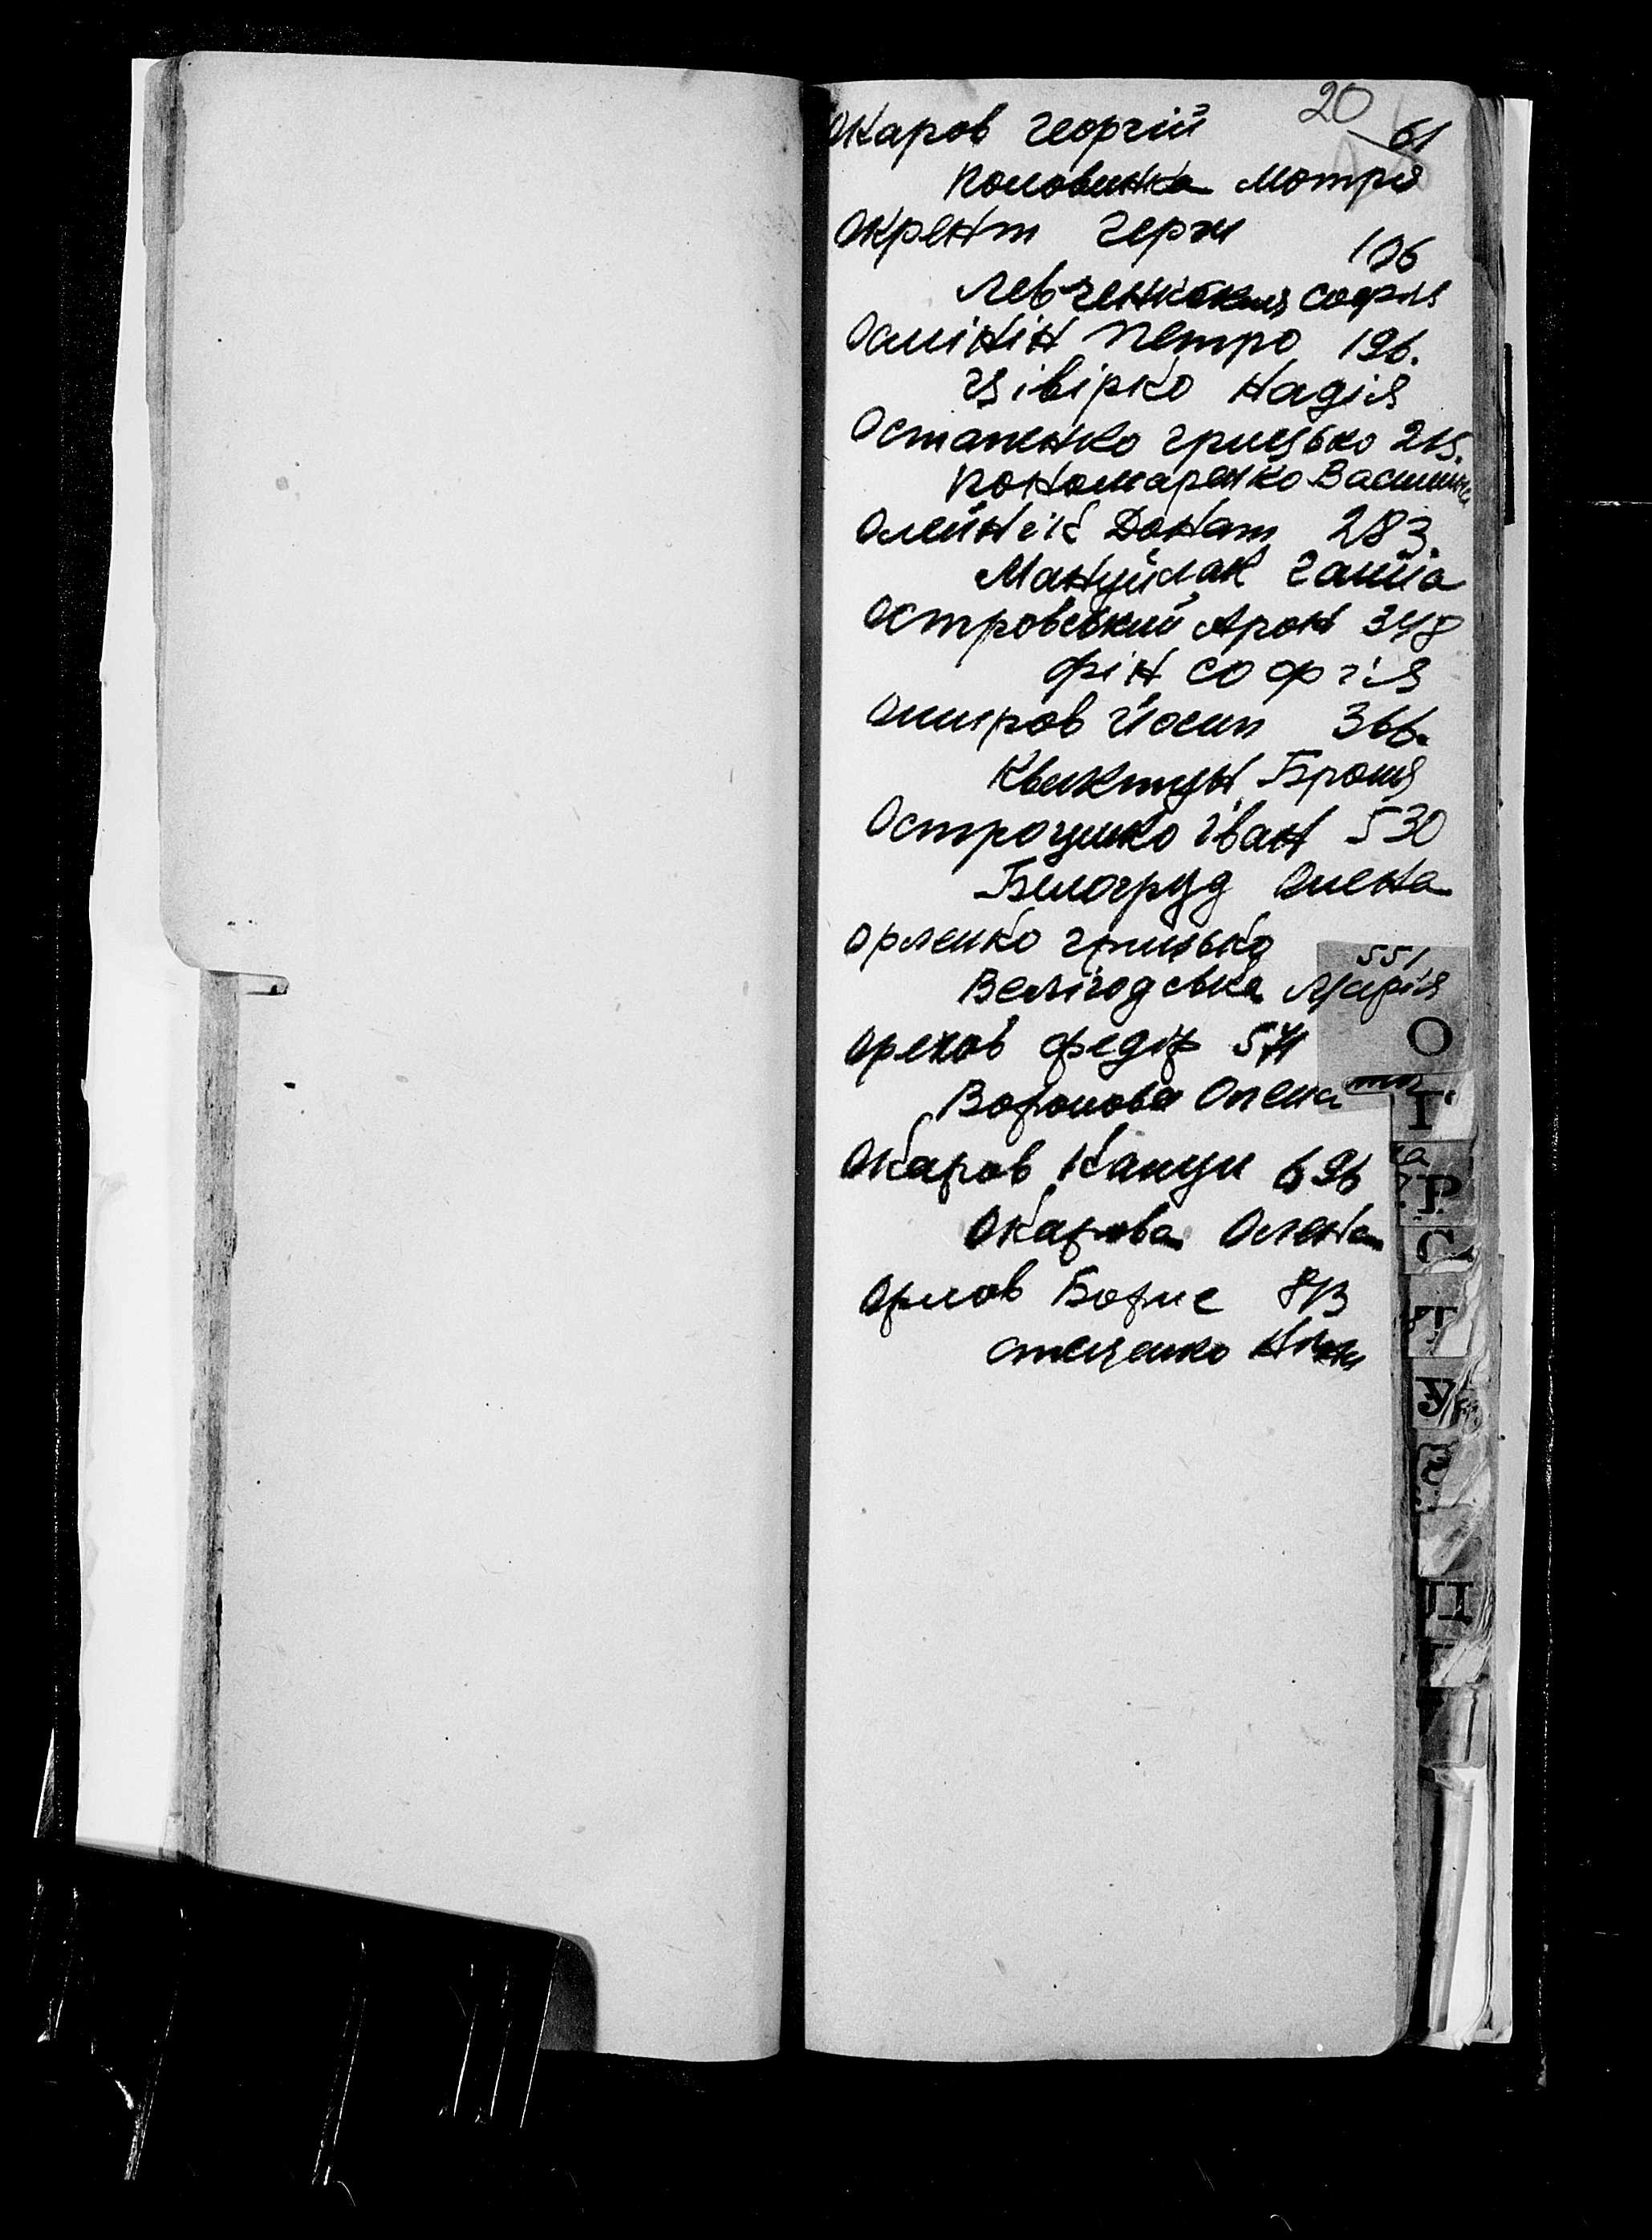 20
Окаров Георгій 61
Половинка Мотря
Окрент Герш 106
Левченкская Софія
Осмінін Петро 196.
Цівірко Надія
Остапенко Грицько 215.
Пономаренко Василина
Олейнік Донат 283.
Мануйлак Галина
Островський Арон 348
Фін Софія
Йосип 366.
Броня
Остроушко Іван 530
Белогруд Олена
Орленко Грицько 551
Велігодська Марія
Орехов Федір 571
Воронова Олена
Окаров 696
Окарова Олена
Орлов Борис 813
Стеценко
О
Р
С
Т
У
Ц